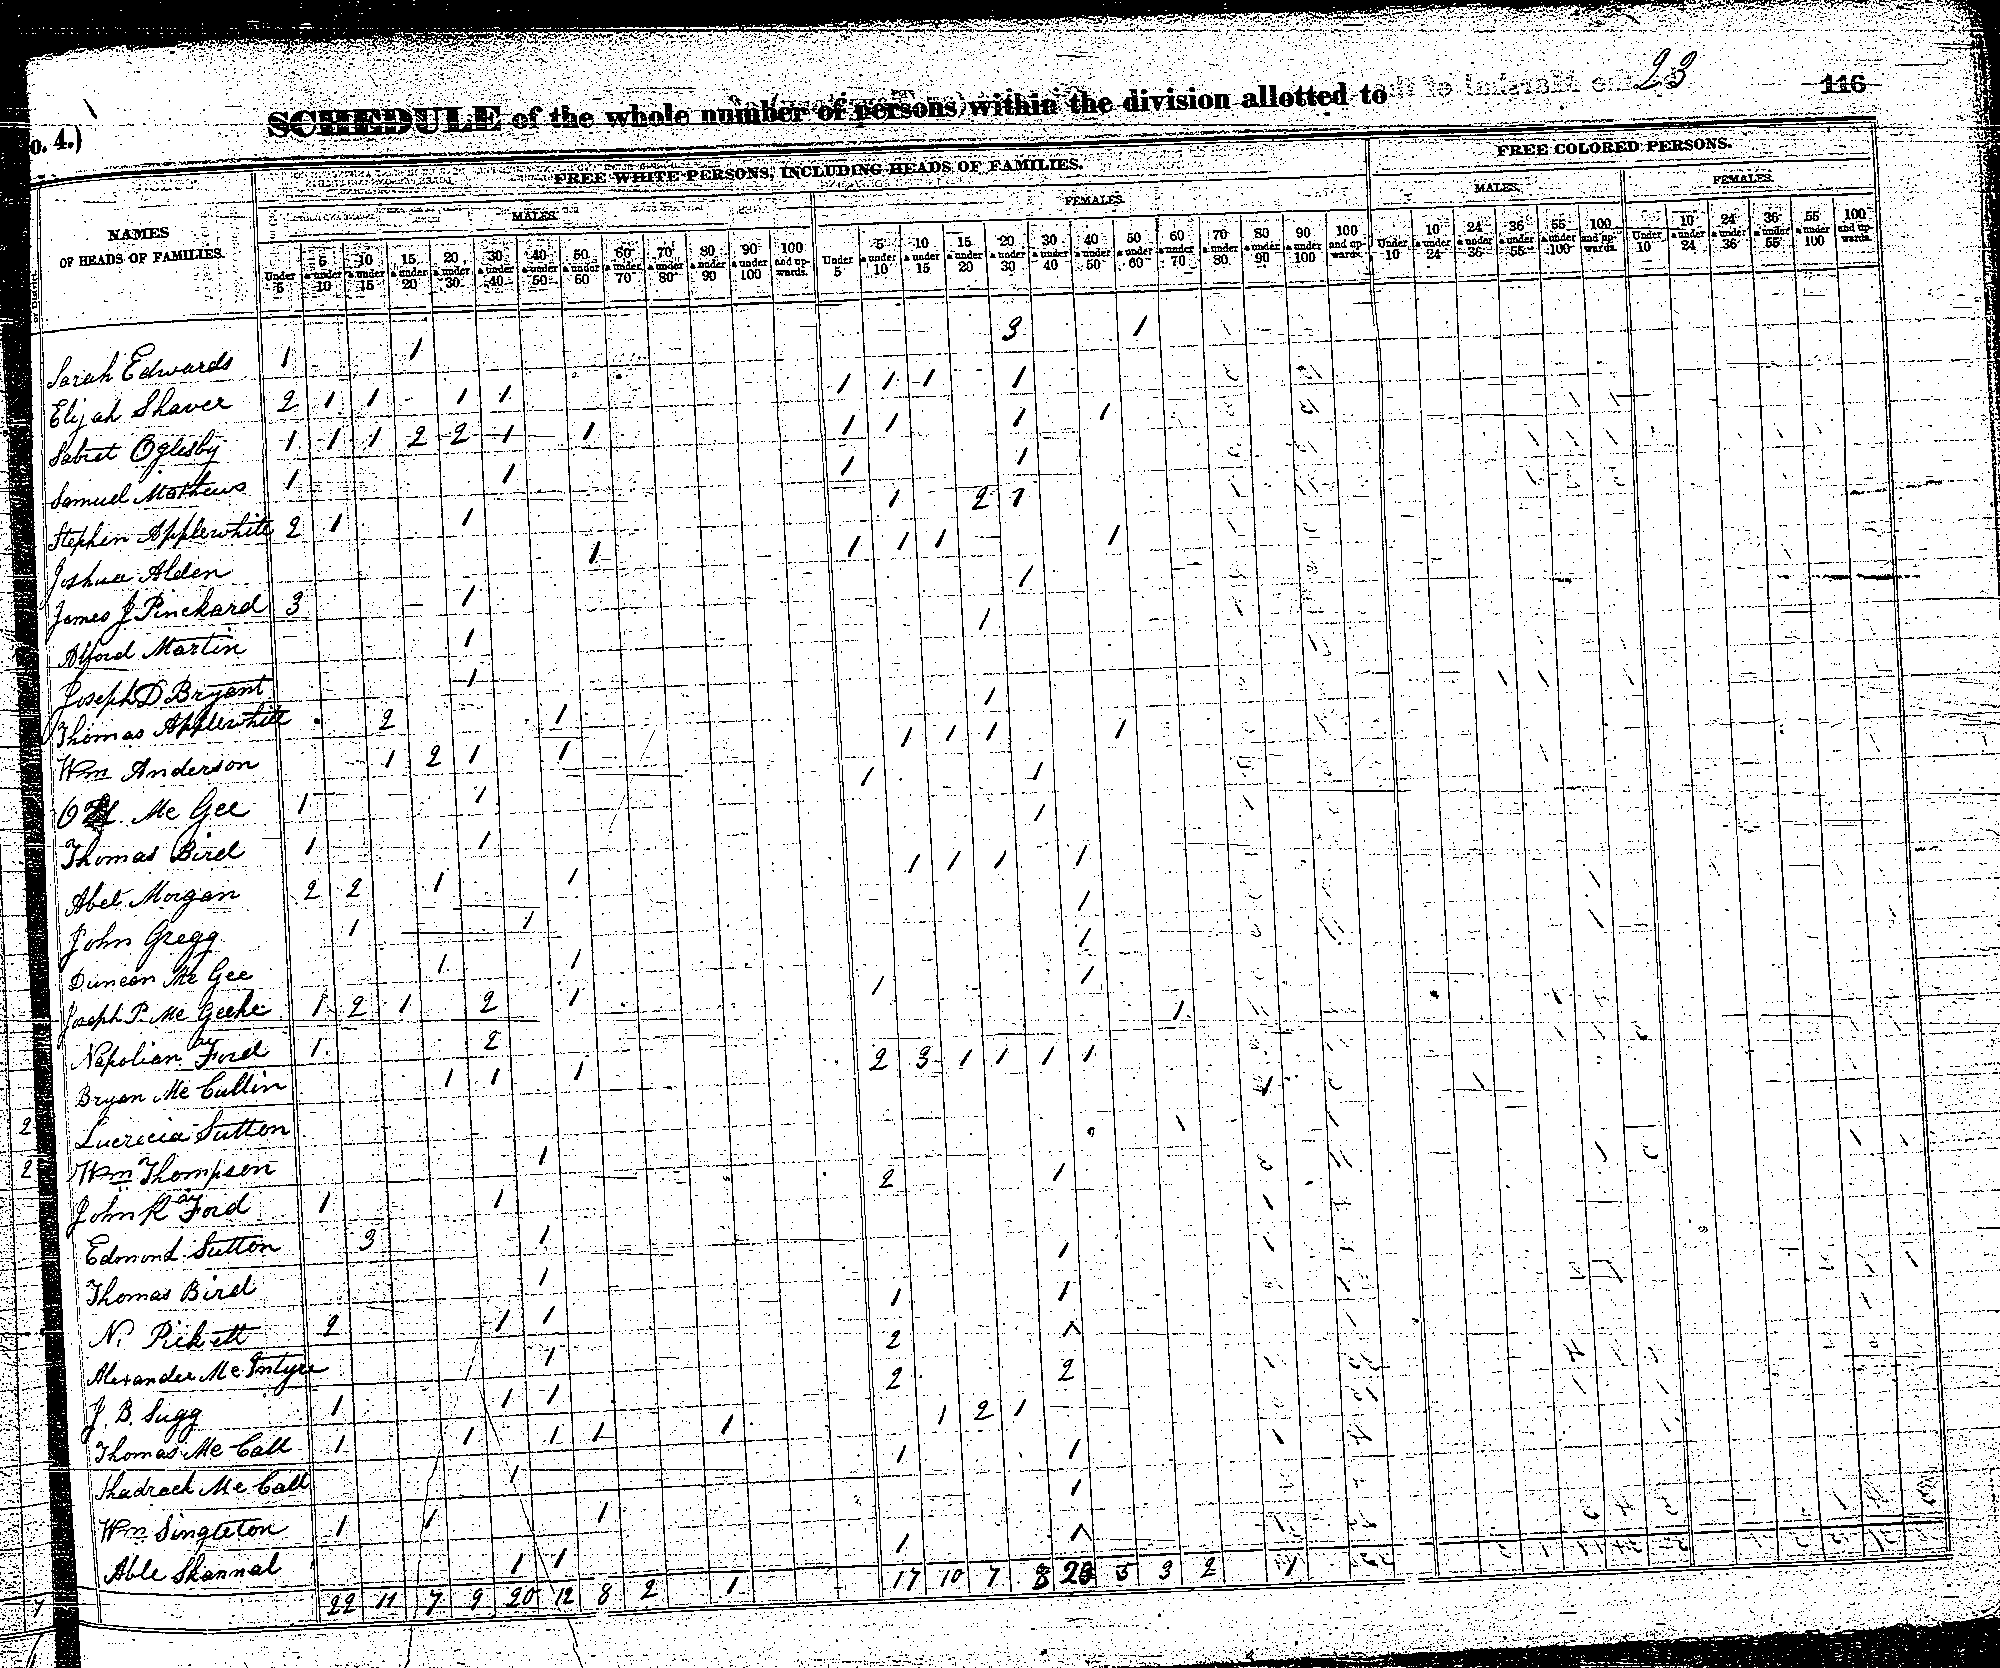 23
116
o. 4.)
SCHEDULE of the whole number of persons within the division allotted to
FREE WHITE PERSONS, INCLUDING HEADS OF FAMILIES.
FREE COLORED PERSONS.
MALES.
FEMALES.
MALES.
FEMALES.
NAMES
OF HEADS OF FAMILIES.
Under 5
5 & under 10
10 & under 15
15 & under 20
20 & under 30
30 & under 40
40 & under 50
50 & under 60
60 & under 70
70 & under 80
80 & under 90
90 & under 100
100 and upwards.
Under 5
5 & under 10
10 & under 15
15 & under 20
20 & under 30
30 & under 40
40 & under 50
50 & under 60
60 & under 70
70 & under 80
80 & under 90
90 & under 100
100 and upwards.
Under 10
10 & under 24
24 & under 36
36 & under 55
55 & under 100
100 and upwards.
Under 10
10 & under 24
24 & under 36
36 & under 55
55 & under 100
100 and upwards.
Sarah Edwards 1 1 3 1
Elijah Shaver 2 1 1 1 1 1 1 1 1
Sabret Oglesby 1 1 1 2 2 1 1 1 1 1 1
Samuel Mathews 1 1 1 1
Stephen Applewhite 2 1 1 1 2 1
Joshua Alden 1 1 1 1 1
James J Pinckard 3 1 1
Alford Martin 1 1
Joseph D Bryant 1
Thomas Applewhite 2 1 1
Wm Anderson 1 2 1 1 1 1 1 1
Mc Gee 1 1 1 1
Thomas Bird 1 1 1
Abel Morgan 2 2 1 1 1 1 1 1
John Gregg 1 1 1
Duncan Mc Gee 1 1 1
Joseph P. Mc Geehe 1 2 1 2 1 1 1
Napolian Ford 1 2 1
Bryan Mc Cullin 1 1 1 2 3 1 1 1 1
2 Lucrecia Sutton 1
2 Wm Thompson 1 1
John R Ford 1 1 2 1
Edmond Sutton 3 1
Thomas Bird 1 1
N. Pickett 2 1 1 1 1
Alexander Mc Intyre 1 2 1
J. B. Sugg 1 1 1 2 2
Thomas Mc Call 1 1 1 1 1 1 2 1
Shadrach Mc Call 1 1 1
Wm Singleton 1 1 1 1
Able Shannal 1 1 1 1
22 11 7 9 20 12 8 2 1 17 10 7 8 5 3 2 1